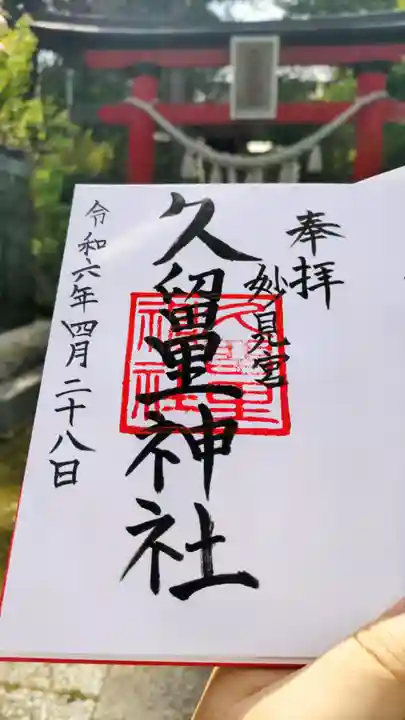 奉拝
妙見宮
久留里神社
令和六年四月二十八日